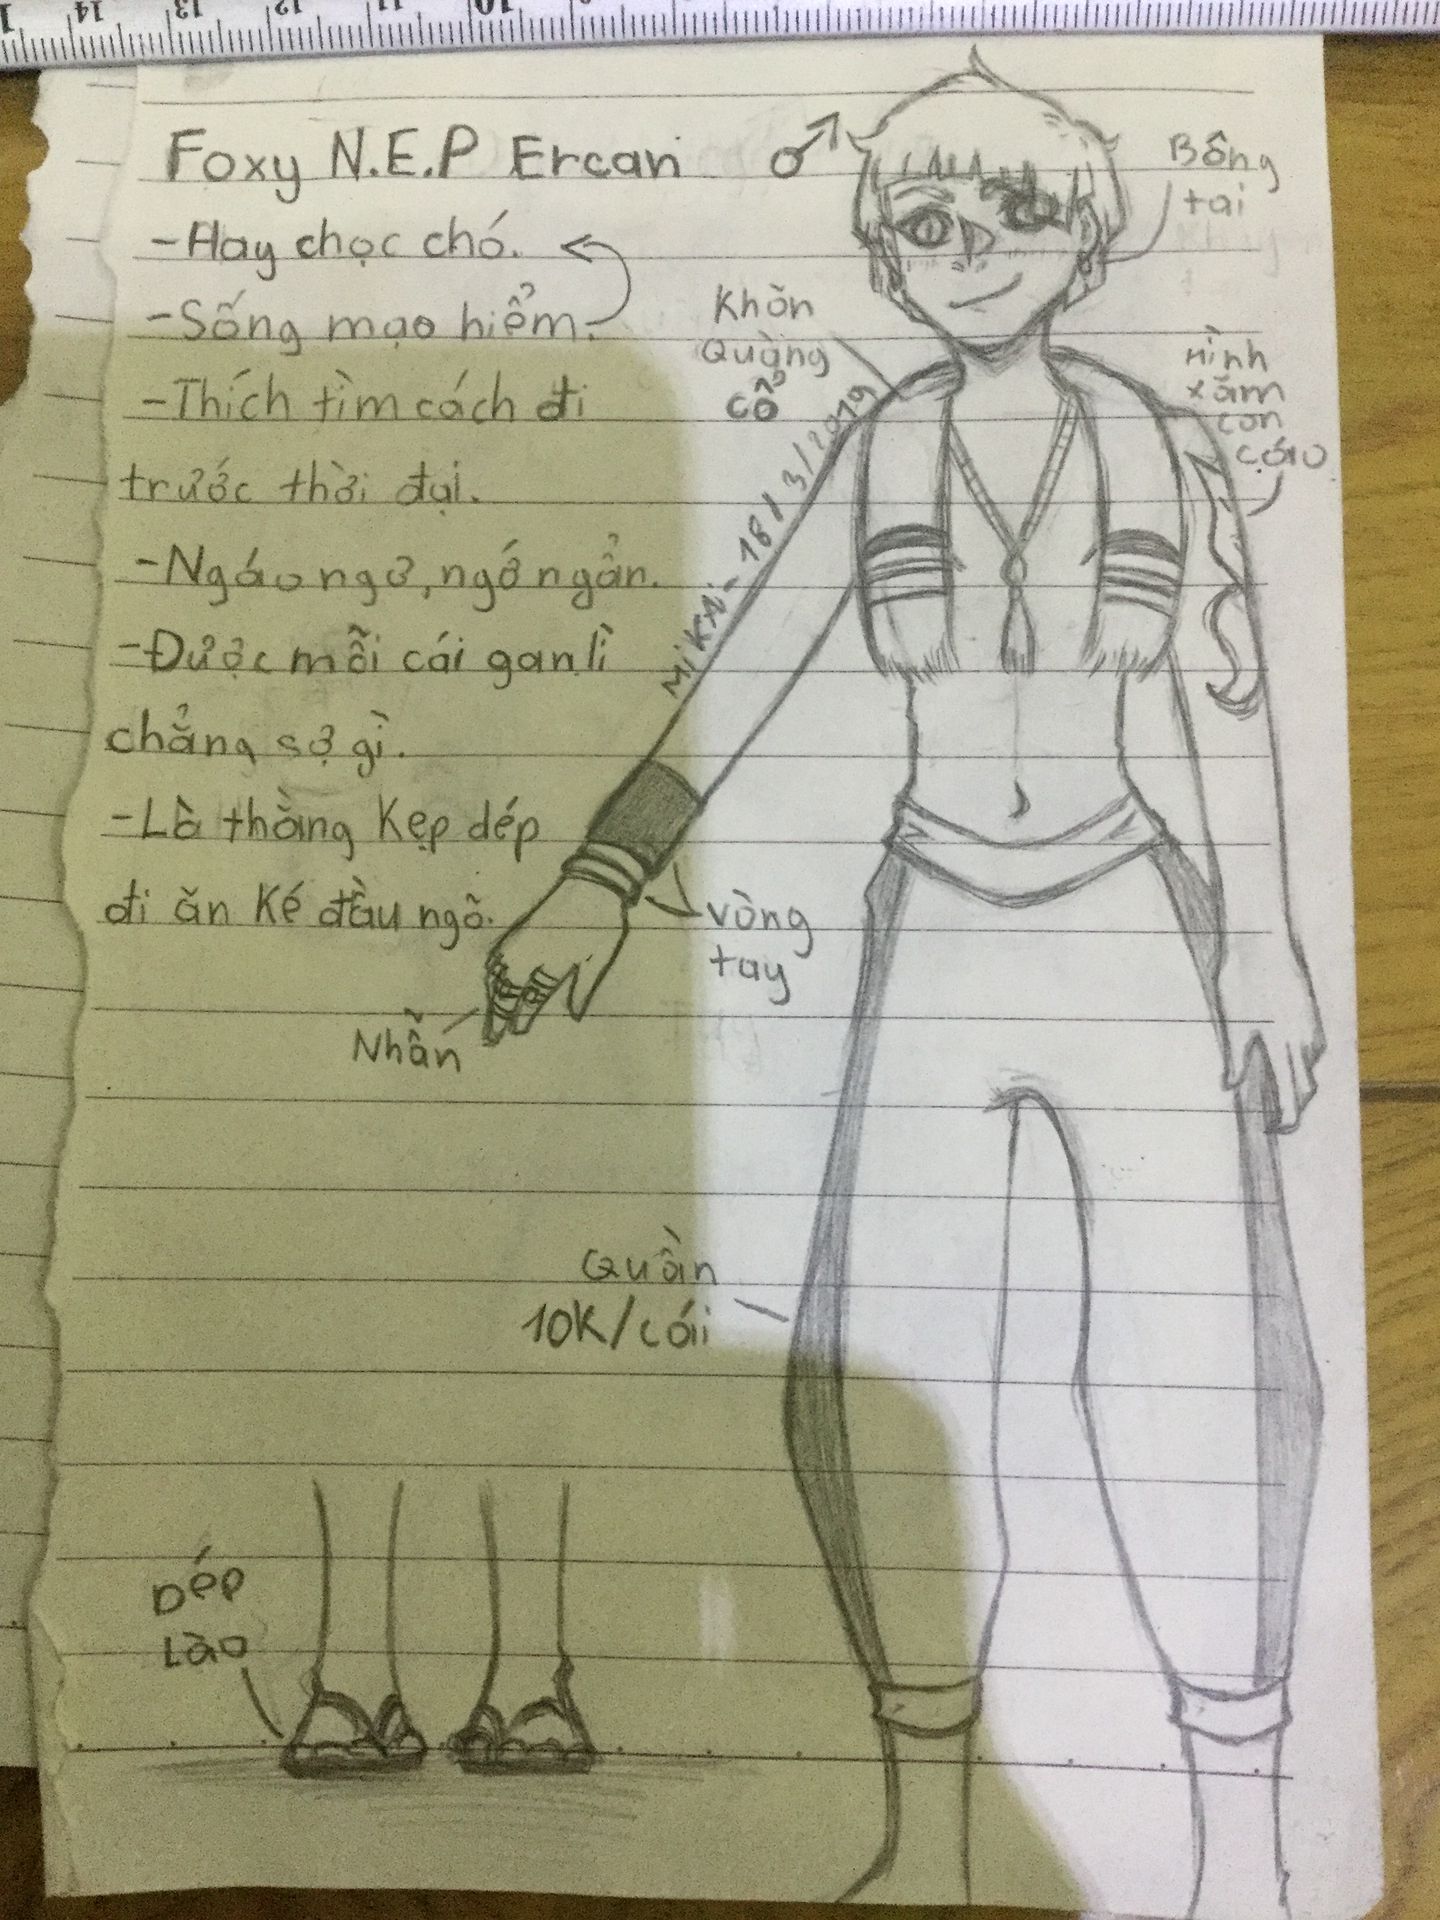 14 13 12 11 10
Foxy N.E.P Ercan ♂
-Hay chọc chó.
-Sống mạo hiểm.
-Thích tìm cách đi
trước thời đại.
-Ngáo ngơ, ngớ ngẩn.
-Được mỗi cái gan lì
chẳng sợ gì.
-Là thằng kẹp dép
đi ăn ké đầu ngõ.
Bông
tai
Khăn
Quàng
cổ
Hình
xăm
con
cáo
MIKA-18/3/2019
Vòng
tay
Nhẫn
Quần
10K/cái
Dép
Lào